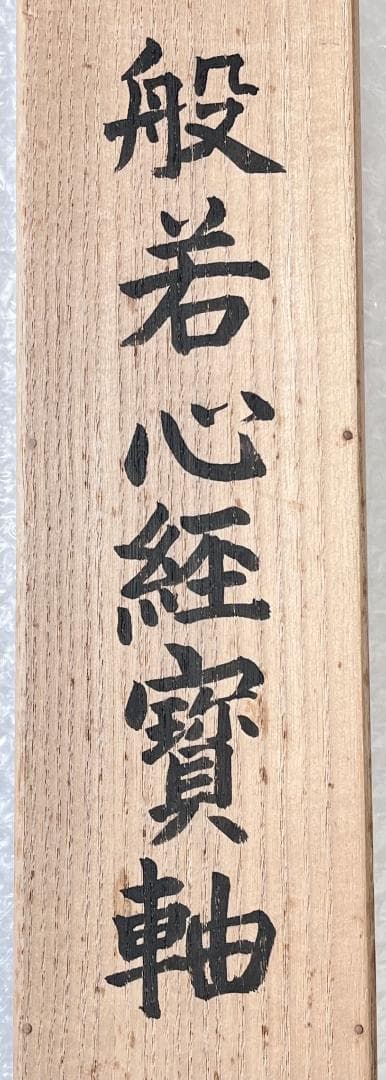 般若心経寳軸